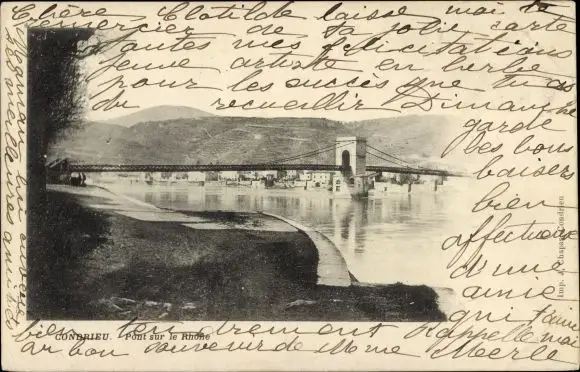 Chère Clotilde laisse moi te
remercier de ta jolie carte
toutes mes félicitations
jeune artiste en herbe
pour les succès que tu as
du recueillir Dimanche
garde
les bons
baisers
bien
affectueux
d'une
amie
qui t'aime
bien tendrement Rappelle moi
au bon souvenir de Mme Merle
CONDRIEU. Pont sur le Rhône
Imp. J. Chapas, Condrieu